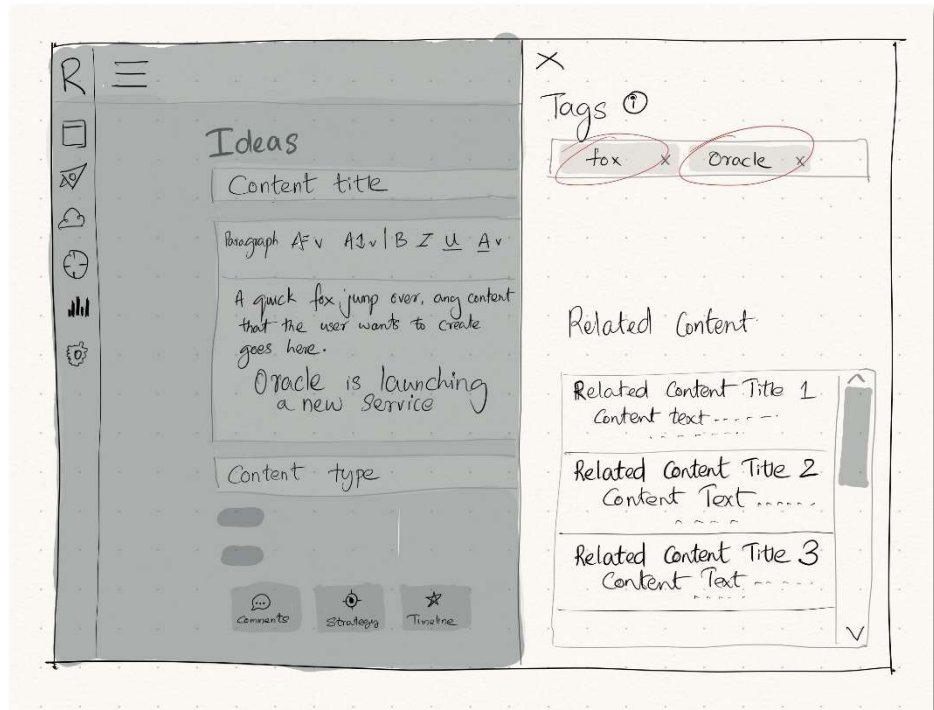 R
Ideas
Content title
Paragraph A A1 | B I U A
A quick fox jump over, any content
that the user wants to create
goes here.
Oracle is launching
a new service
Content type
Comments
Strategy
Timeline
X
Tags i
fox x Oracle x
Related Content
Related Content Title 1
Content text
Related Content Title 2
Content Text
Related Content Title 3
Content Text